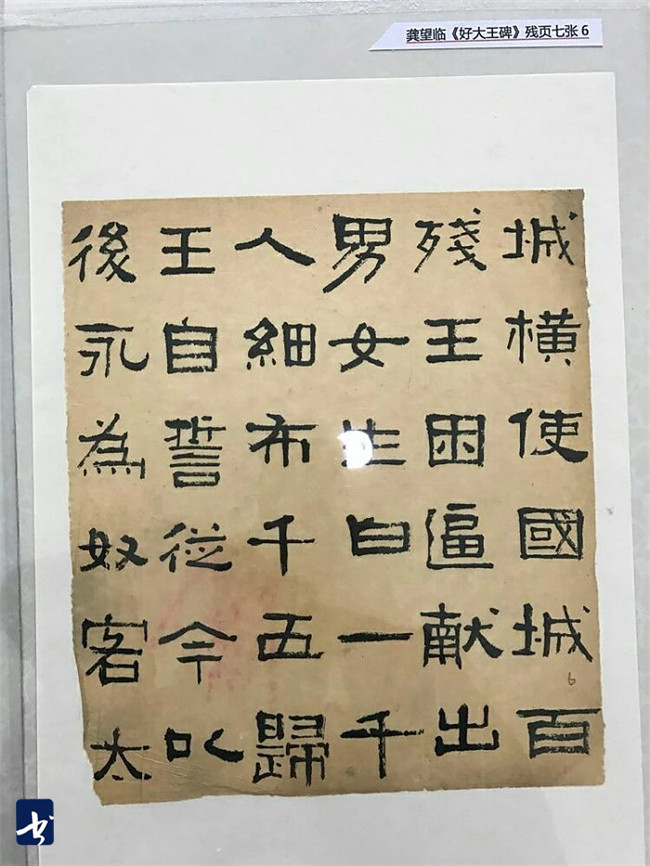 龚望临《好大王碑》残页七张 6
城横使國城百
殘王困逼献出
男女生白一千
人細布千五歸
王自誓從今以
後永為奴客太
6
书